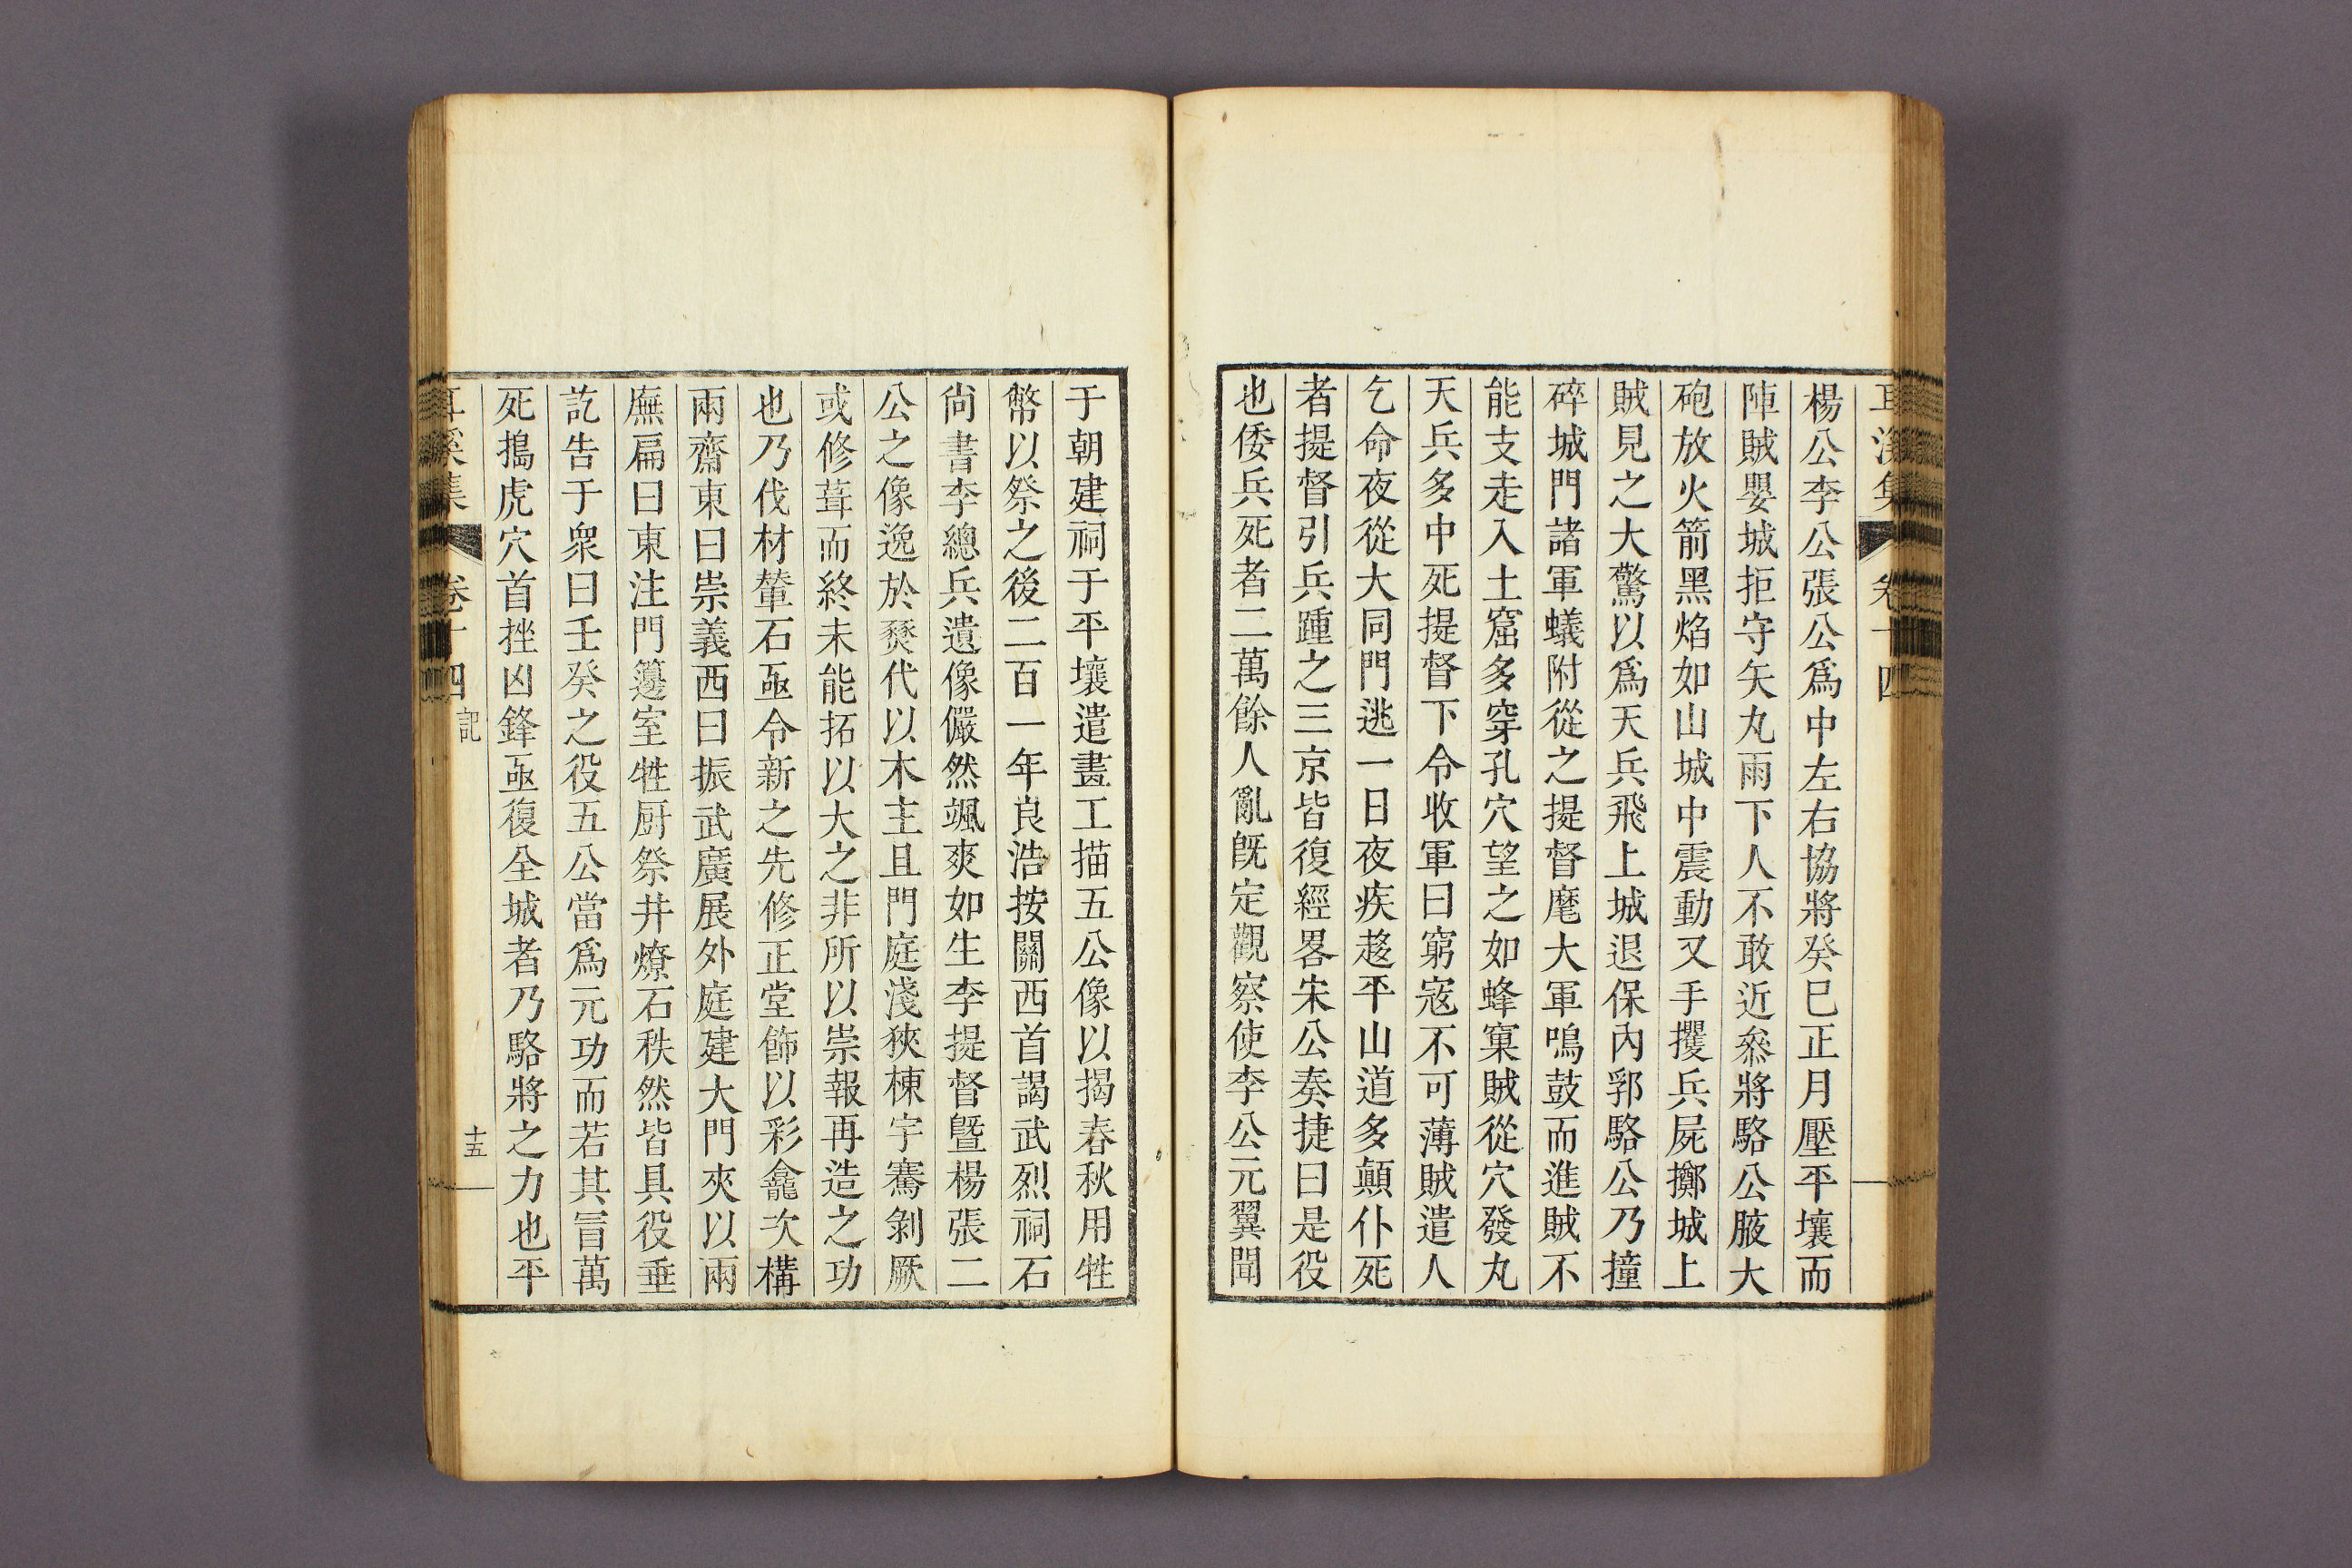 耳溪集 卷十四
楊公李公張公爲中左右協將癸巳正月壓平壤而
陣賊嬰城拒守矢丸雨下人不敢近叅將駱公腋大
砲放火箭黑焰如山城中震動又手攫兵屍擲城上
賊見之大驚以爲天兵飛上城退保內郛駱公乃撞
碎城門諸軍蟻附從之提督麾大軍鳴鼓而進賊不
能支走入土窟多穿孔穴望之如蜂窠賊從穴發丸
天兵多中死提督下令收軍曰窮寇不可薄賊遣人
乞命夜從大同門逃一日夜疾趍平山道多顚仆死
者提督引兵踵之三京皆復經畧宋公奏捷曰是役
也倭兵死者二萬餘人亂旣定觀察使李公元翼聞
于朝建祠于平壤遣畫工描五公像以揭春秋用牲
幣以祭之後二百一年良浩按關西首謁武烈祠石
尙書李總兵遺像儼然颯爽如生李提督曁楊張二
公之像逸於燹代以木主且門庭淺狹棟宇騫剝厥
或修葺而終未能拓以大之非所以崇報再造之功
也乃伐材輦石亟令新之先修正堂飾以彩龕次構
兩齋東曰崇義西曰振武廣展外庭建大門夾以兩
廡扁曰東注門籩室牲厨祭井燎石秩然皆具役垂
訖告于衆曰壬癸之役五公當爲元功而若其冒萬
死搗虎穴首挫凶鋒亟復全城者乃駱將之力也平
耳溪集 卷十四 記 十五